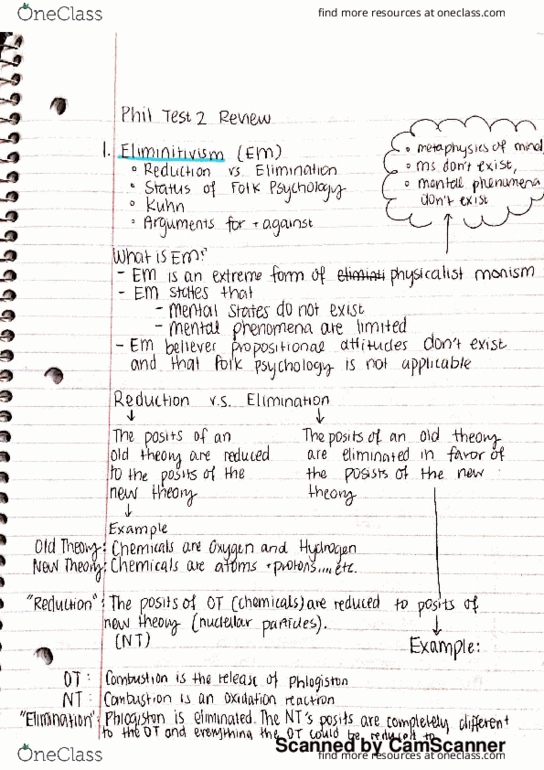 OneClass
find more resources at oneclass.com
Phil Test 2 Review
1. Eliminitivism (EM)
◦ Reduction vs Elimination
◦ Status of Folk Psychology
◦ Kuhn
◦ Arguments for + against
◦ metaphysics of mind,
◦ ms don't exist,
◦ mental phenomena
don't exist
What is EM?
- EM is an extreme form of elimiati physicalist monism
- EM states that
- mental states do not exist
- mental phenomena are limited
- EM believer propositional attitudes don't exist
and that folk psychology is not applicable
Reduction v.s. Elimination
The posits of an
old theory are reduced
to the posits of the
new theory
The posits of an old theory
are eliminated in favor of
the posists of the new
theory
Example
Old Theory: Chemicals are Oxygen and Hydrogen
New Theory: Chemicals are atoms + protons.... etc.
"Reduction": The posits of OT (chemicals) are reduced to posits of
new theory (nucleiar particles).
(NT)
Example:
OT: Combustion is the release of Phlogiston
NT: Combustion is an oxidation reaction
"Elimination": Phlogiston is eliminated. The NT's posits are completely different
to the OT and everything the OT could be reduced to
Scanned by CamScanner
OneClass
find more resources at oneclass.com